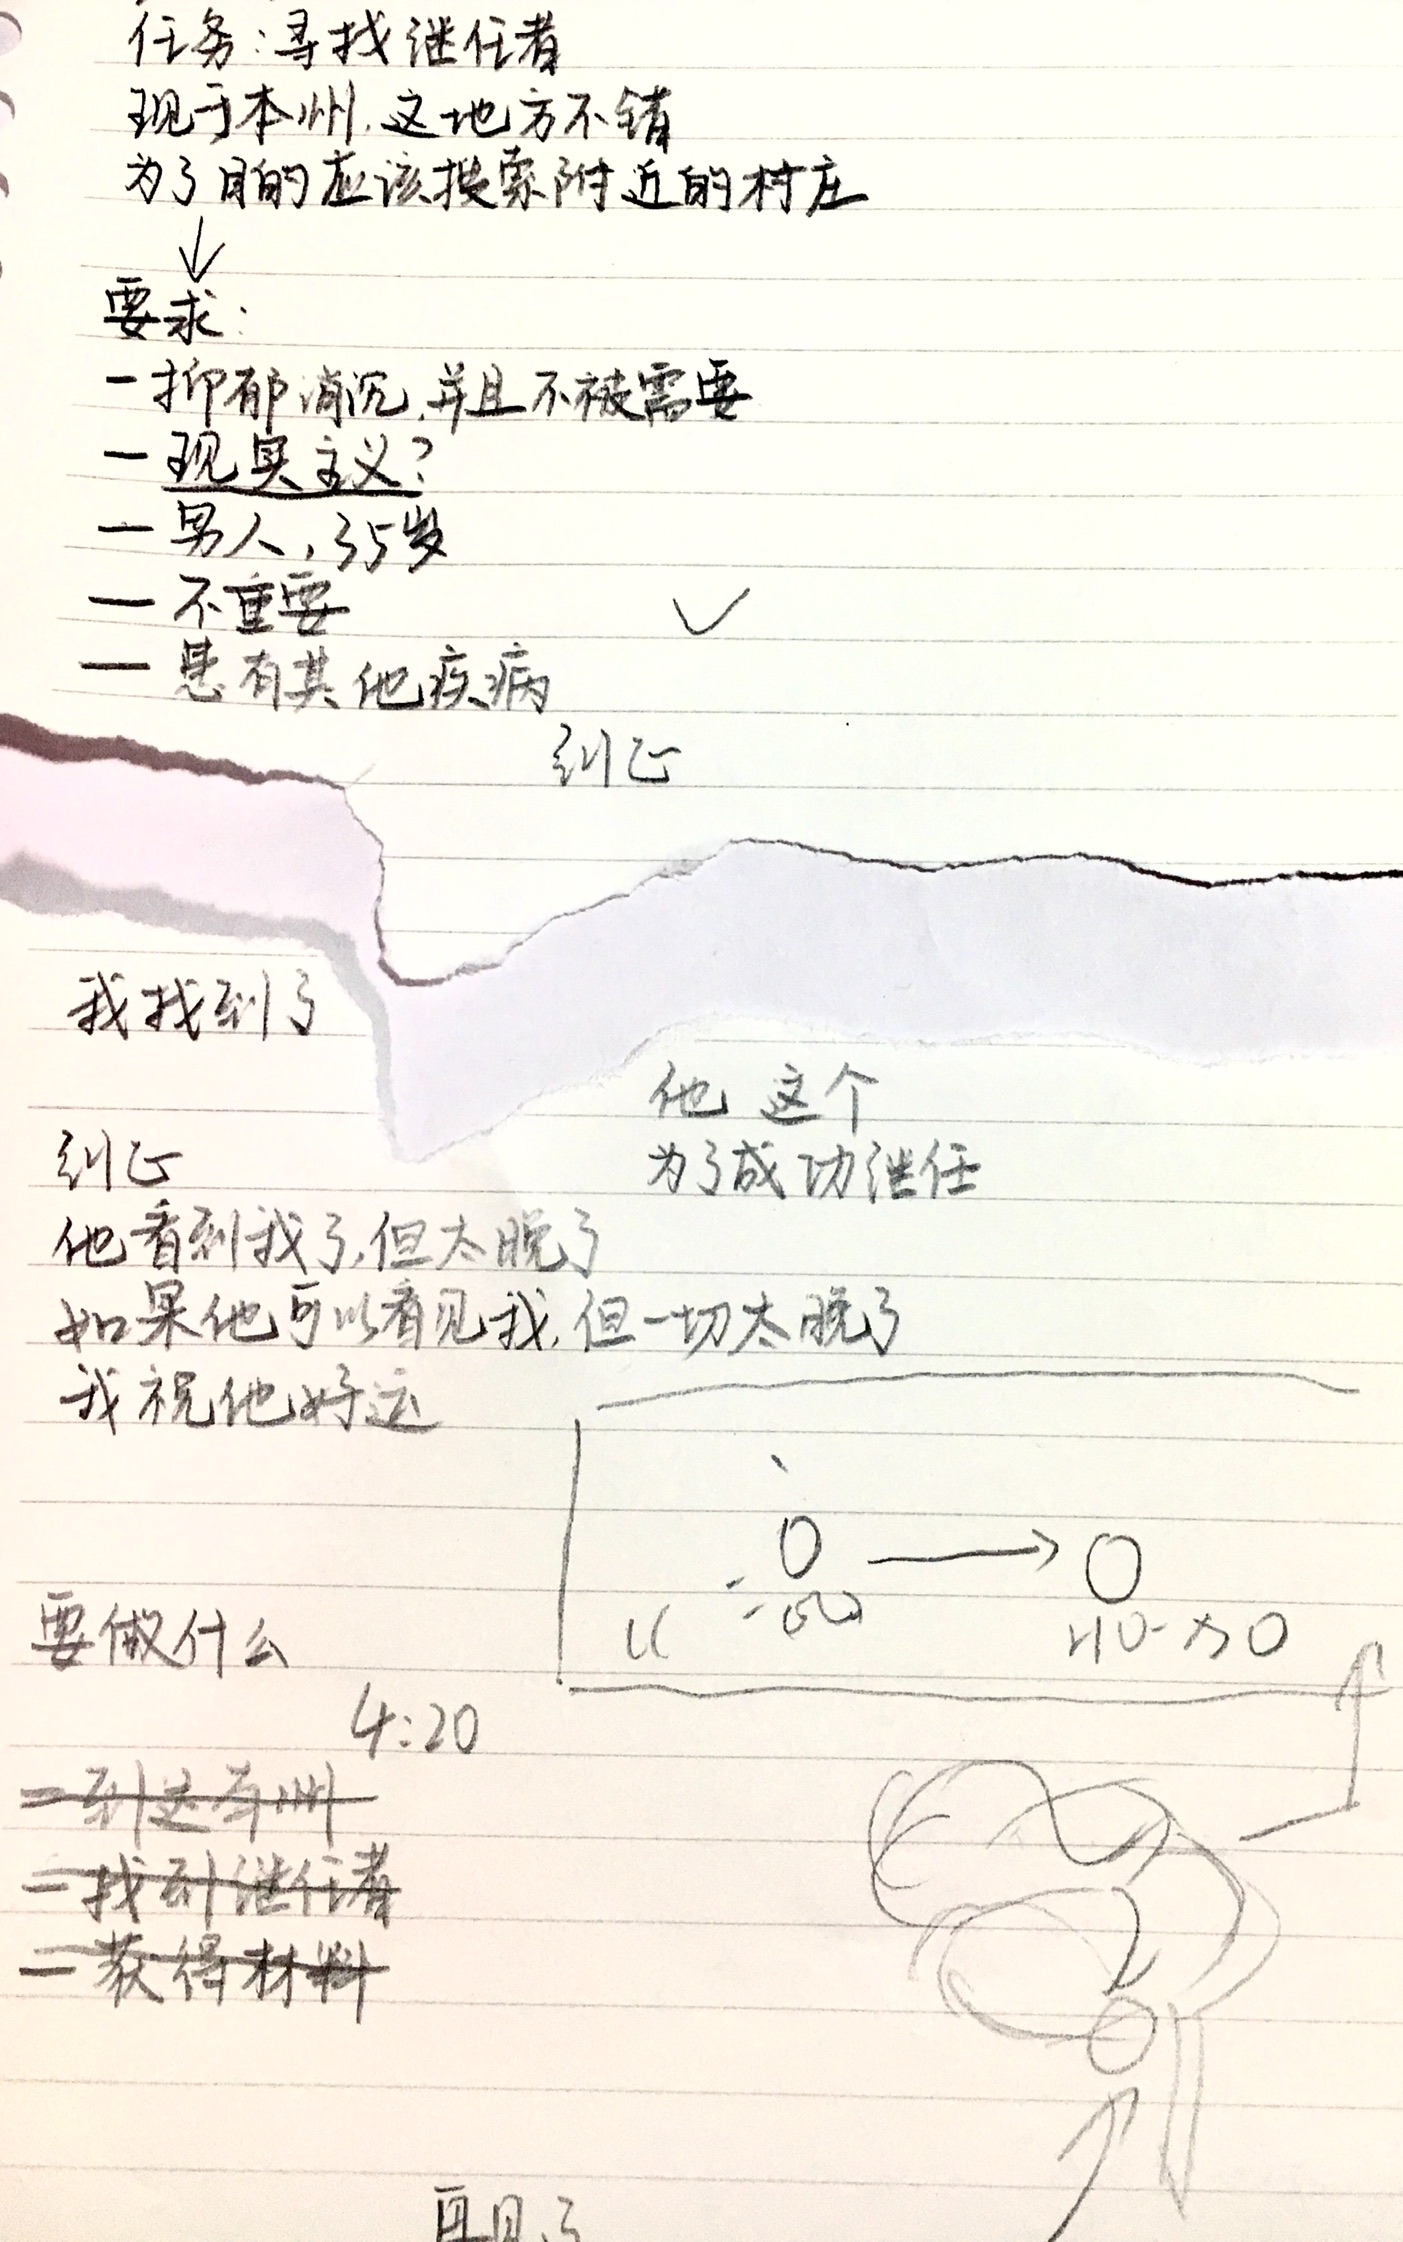 任务:寻找继任者
现于本州,这地方不错
为了目的应该搜索附近的村庄
要求:
-抑郁消沉,并且不被需要
-现实主义?
-男人,35岁
-不重要
-患有其他疾病
纠正
我找到了
他 这个
为了成功继任
纠正
他看到我了,但太晚了
如果他可以看见我,但一切太晚了
我祝他好运
要做什么
4:20
-到达本州
-找到继任者
-获得材料
再见了